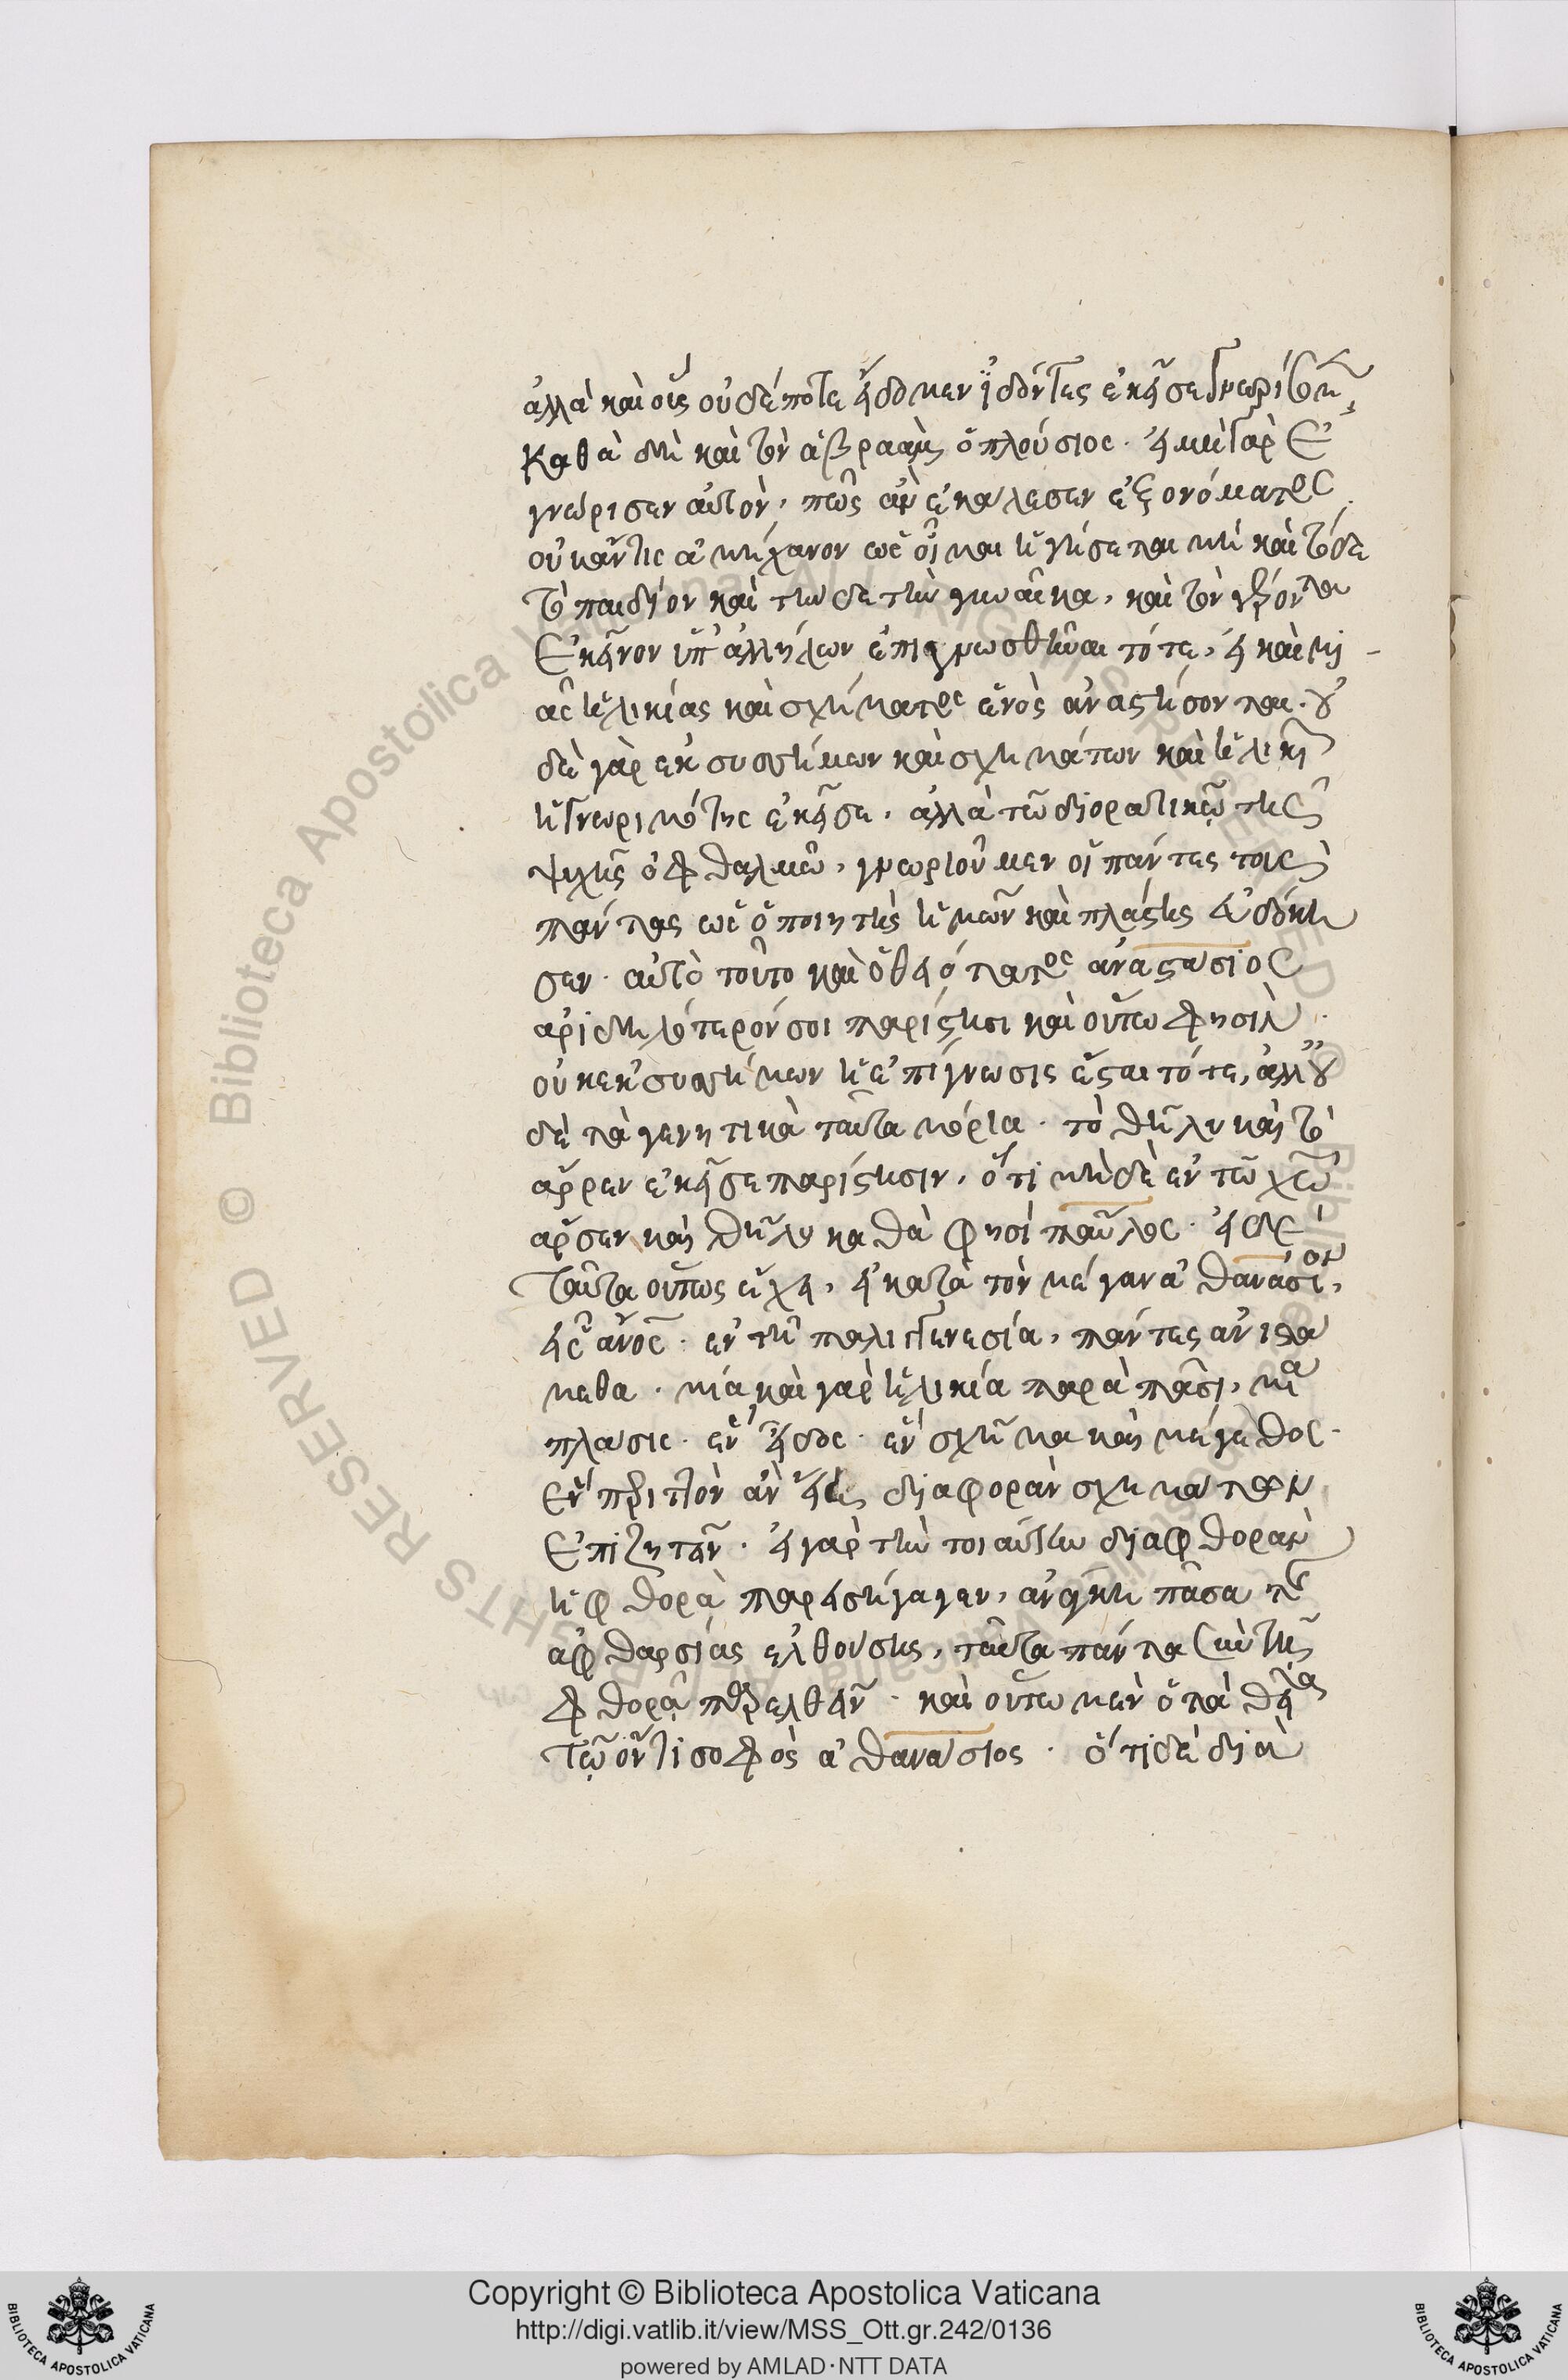 ἀλλὰ καὶ οὓς οὐδέποτε εἴδομεν ἰδόντες ἐκεῖσε γνωριοῦμεν,
καθὰ δὴ καὶ τὸν ἀβραὰμ ὁ πλούσιος. εἰ μὴ γὰρ ἐ
γνώρισεν αὐτὸν, πῶς ἂν ἐκάλεσεν ἐξ ὀνόματος.
οὐκ ἄν τις ἀμήχανον ὡς οἶμαι ἡγήσεται μὴ καὶ τόδε
τὸ παιδίον καὶ τήνδε τὴν γυναῖκα, καὶ τὸν γέροντα
ἐκεῖνον ὑπ' ἀλλήλων ἐπιγνωσθῆναι τότε, εἰ καὶ μι
ᾶς ἡλικίας καὶ σχήματος ἑνὸς ἀναστήσονται. οὐ
δὲ γὰρ ἐκ συσσήμων καὶ σχημάτων καὶ ἡλικιῶν
ἡ γνωριμότης ἐκεῖσε, ἀλλὰ τῶ διορατικῶ τῆς
ψυχῆς ὀφθαλμῶ, γνωριοῦμεν οἱ πάντες τοὺς
πάντας ὡς ὁ ποιητὴς ἡμῶν καὶ πλάστης εὐδόκη
σεν. αὐτὸ τοῦτο καὶ ὁ θειότατος ἀναστάσιος
ἀριδηλότερόν σοι παρίστησι καὶ οὕτω φησὶν.
οὐκ ἐκ συσσήμων ἡ ἐπίγνωσις ἔσται τότε, ἀλλ' οὐ
δὲ τὰ γεννητικὰ ταῦτα μόρια. τὸ θῆλυ καὶ τὸ
ἄρρεν ἐκεῖσε παρίστησιν, ὅτι μὴ δὲ ἐν τῶ χῶ
ἄρσεν καὶ θῆλυ καθὰ φησὶ παῦλος. εἰ δὲ
ταῦτα οὕτως ἔχει, εἰ κατὰ τὸν μέγαν ἀθανάσιον,
εἷς ἄνος. ἐν τῆ παλιγγενεσία, πάντες ἀνιστά
μεθα. μία καὶ γὰρ ἡλικία παρὰ πᾶσι, μία
πλάσις. ἓν εἶδος. ἓν σχῆμα καὶ μέγεθος.
ἓν περιττὸν ἂν εἴη διαφορὰν σχημάτων
ἐπιζητεῖν. εἰ γὰρ τὴν τοιαύτην διαφθορὰν
ἡ φθορὰ παρεισήγαγεν, ἀνάγκη πᾶσα τῆς
ἀφθαρσίας ἐλθούσης, ταῦτα πάντα σὺν τῆ
φθορᾶ παρελθεῖν. καὶ οὕτω μὲν ὁ τὰ θεῖα
τῶ ὄντι σοφὸς ἀθανάσιος. ὅτι δὲ διὰ
Copyright © Biblioteca Apostolica Vaticana
http://digi.vatlib.it/view/MSS_Ott.gr.242/0136
powered by AMLAD·NTT DATA